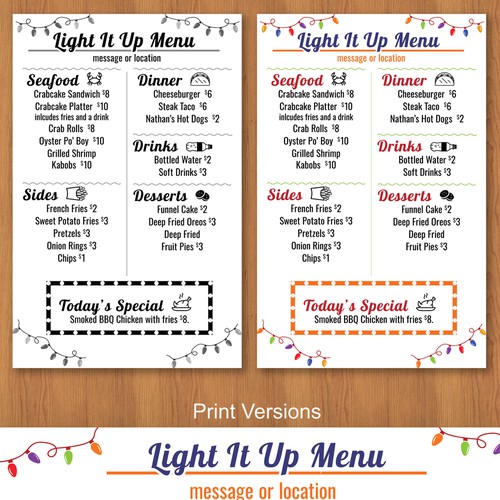 Light It Up Menu
message or location
Seafood
Crabcake Sandwich $8
Crabcake Platter $10
inlcudes fries and a drink
Crab Rolls $8
Oyster Po' Boy $10
Grilled Shrimp
Kabobs $10
Sides
French Fries $2
Sweet Potato Fries $3
Pretzels $3
Onion Rings $3
Chips $1
Dinner
Cheeseburger $6
Steak Taco $6
Nathan's Hot Dogs $2
Drinks
Bottled Water $2
Soft Drinks $3
Desserts
Funnel Cake $2
Deep Fried Oreos $3
Deep Fried
Fruit Pies $3
Today's Special
Smoked BBQ Chicken with fries $8.
Light It Up Menu
message or location
Seafood
Crabcake Sandwich $8
Crabcake Platter $10
inlcudes fries and a drink
Crab Rolls $8
Oyster Po' Boy $10
Grilled Shrimp
Kabobs $10
Sides
French Fries $2
Sweet Potato Fries $3
Pretzels $3
Onion Rings $3
Chips $1
Dinner
Cheeseburger $6
Steak Taco $6
Nathan's Hot Dogs $2
Drinks
Bottled Water $2
Soft Drinks $3
Desserts
Funnel Cake $2
Deep Fried Oreos $3
Deep Fried
Fruit Pies $3
Today's Special
Smoked BBQ Chicken with fries $8.
Print Versions
Light It Up Menu
message or location